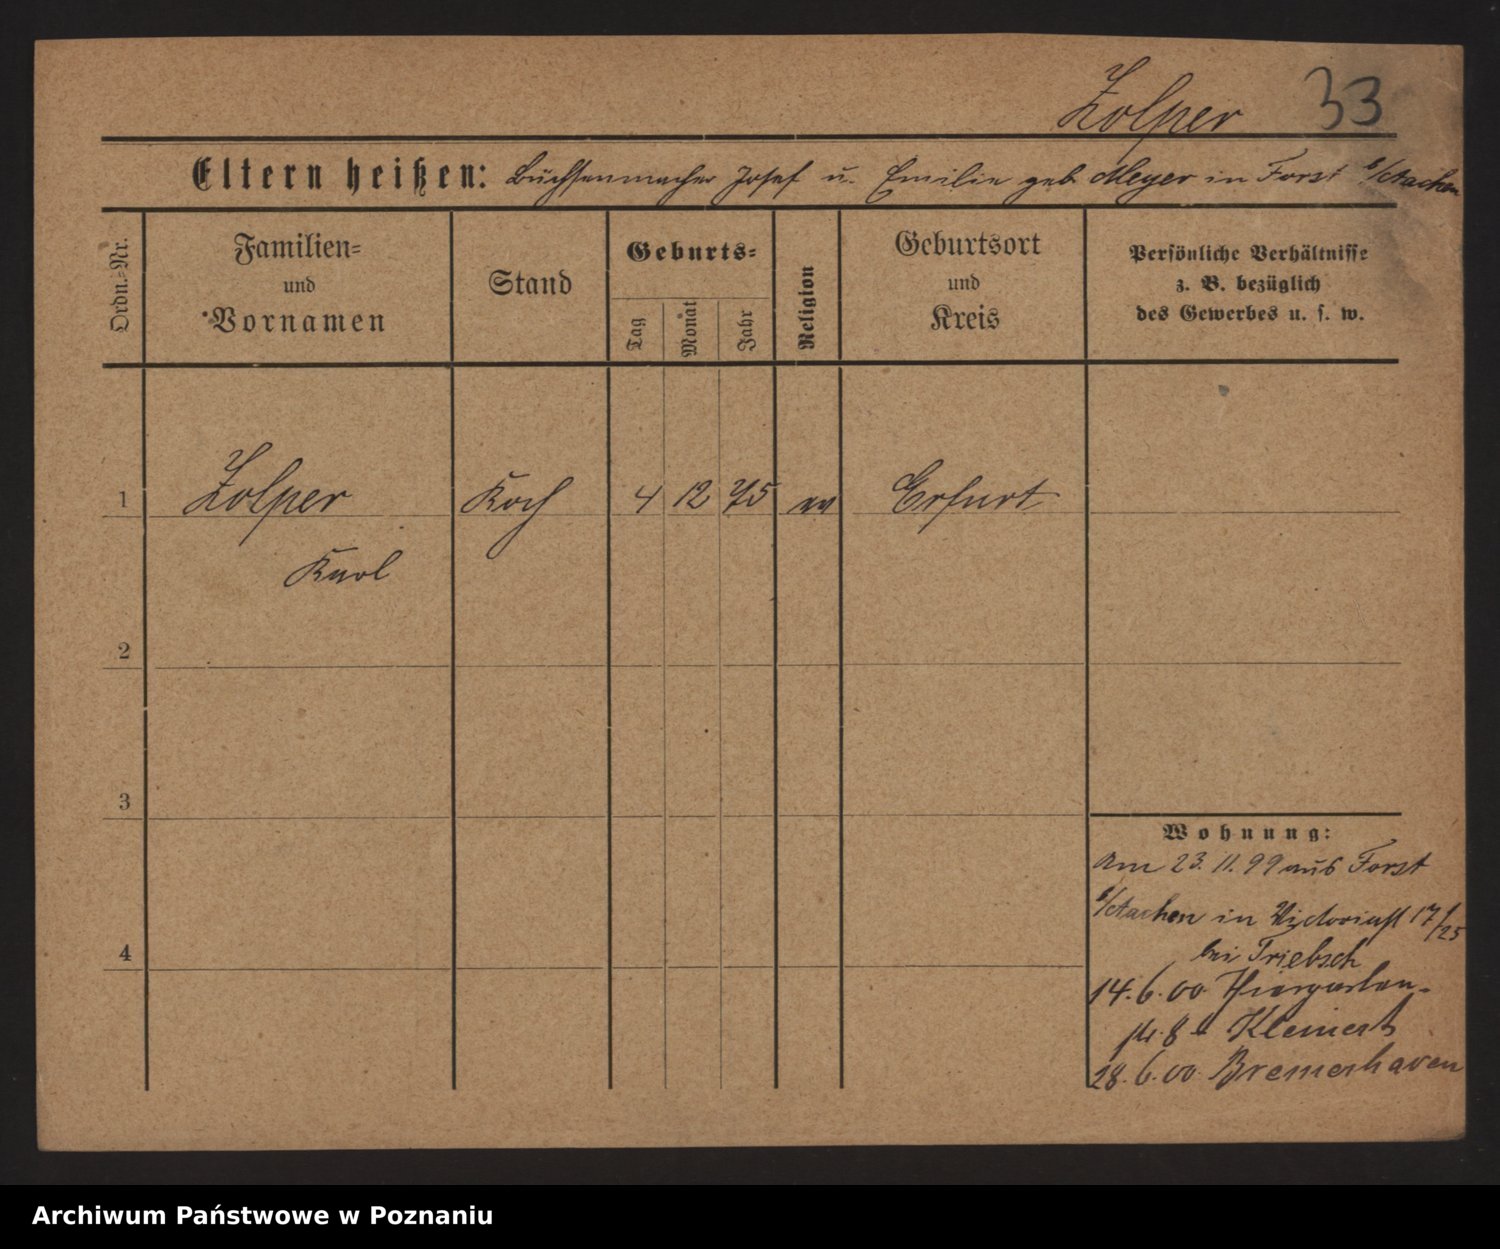 Zolper 33
Eltern heißen: Büchsenmacher Josef u. Emilie geb. Meyer in Forst b/Aachen
Ordn.-Nr.
Familien-
und
Vornamen
Stand
Geburts-
Tag
Monat
Jahr
Religion
Geburtsort
und
Kreis
Persönliche Verhältnisse
z. B. bezüglich
des Gewerbes u. s. w.
1 Zolper Koch 4 12 75 ev Erfurt
Karl
2
3
4
Wohnung:
Am 23.11.99 aus Forst
b/Aachen in Victoriast 17/25
bei Triebsch
14.6.00
8 Kleinert
28.6.00 Bremerhaven
Archiwum Państwowe w Poznaniu